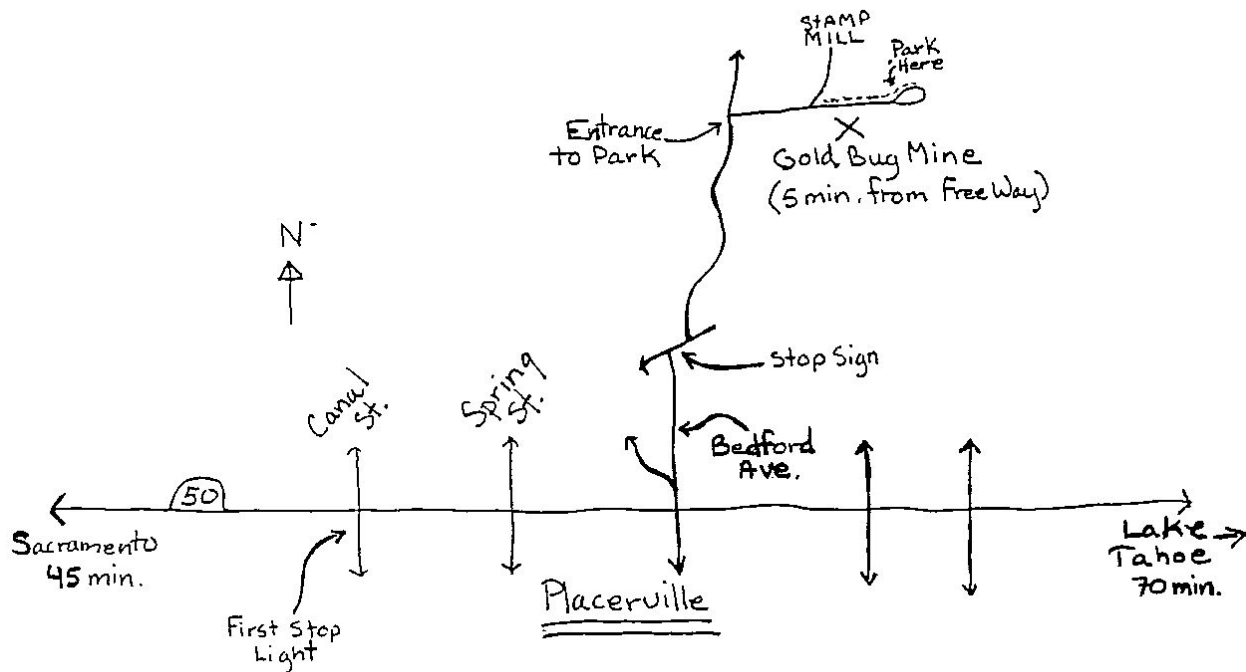 STAMP
MILL
Park
Here
Entrance
to Park
Gold Bug Mine
(5 min. from FreeWay)
N
Stop Sign
Canal
St.
Spring
St.
Bedford
Ave.
50
Sacramento
45 min.
Lake
Tahoe
70 min.
Placerville
First Stop
Light